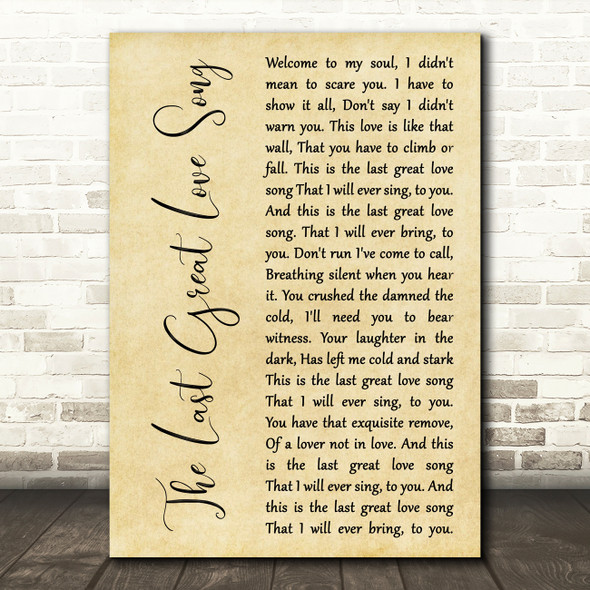 The Last Great Love Song
Welcome to my soul, I didn't
mean to scare you. I have to
show it all, Don't say I didn't
warn you. This love is like that
wall, That you have to climb or
fall. This is the last great love
song That I will ever sing, to you.
And this is the last great love
song. That I will ever bring, to
you. Don't run I've come to call,
Breathing silent when you hear
it. You crushed the damned the
cold, I'll need you to bear
witness. Your laughter in the
dark, Has left me cold and stark
This is the last great love song
That I will ever sing, to you.
You have that exquisite remove,
Of a lover not in love. And this
is the last great love song
That I will ever sing, to you. And
this is the last great love song
That I will ever bring, to you.